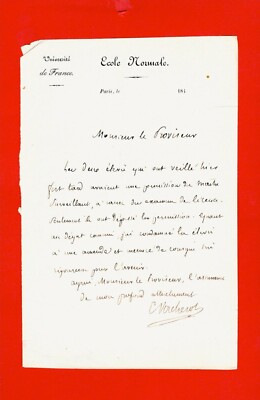 Université
de France.
Ecole Normale.
Paris, le 184
Monsieur le Proviseur
Les deux élèves qui ont veillé hier
fort tard avaient une permission du maître
surveillant, à cause des examens de licence.
Seulement ils ont dépassé la permission. Quant
au dégat commis, j'ai condamné les élèves
à une amende et menacé de consigne
rigoureuse pour l'avenir.
agréez, Monsieur le Proviseur, l'assurance
de mon profond attachement
E Vacherot